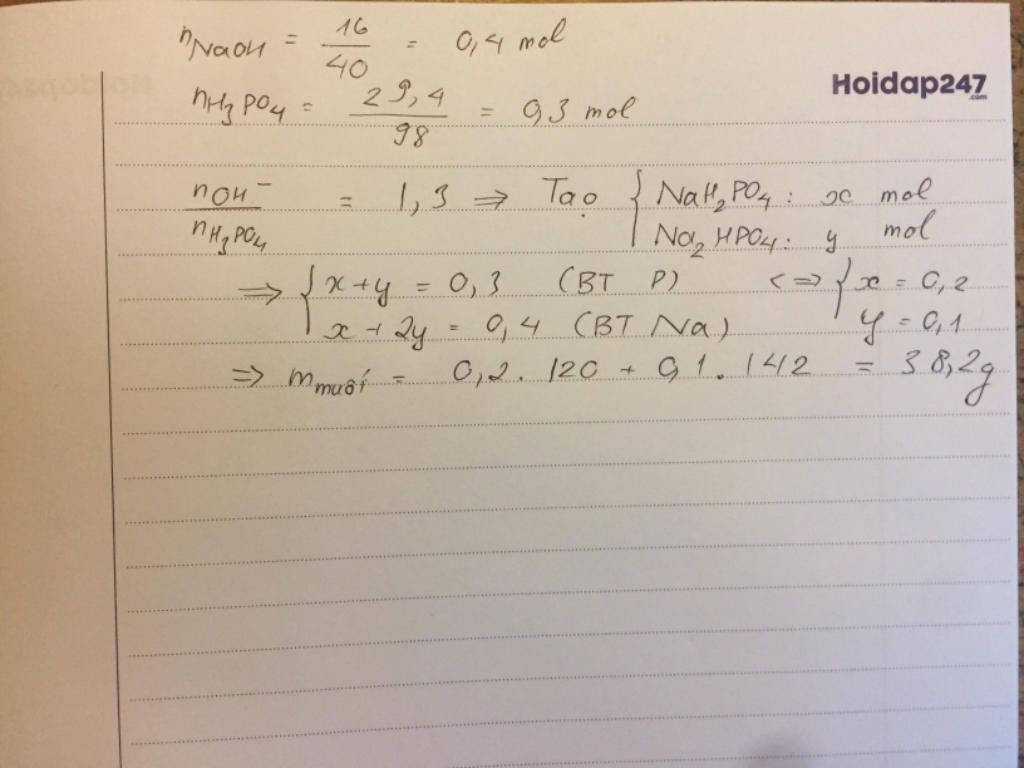 nNaOH = 16/40 = 0,4 mol
Hoidap247
.com
nH3PO4 = 29,4/98 = 0,3 mol
nOH⁻/nH3PO4 = 1,3 ⇒ Tạo { NaH2PO4: x mol
Na2HPO4: y mol
⇒ { x+y = 0,3 (BT P) <=> { x = 0,2
x + 2y = 0,4 (BT Na) y = 0,1
⇒ m muối = 0,2. 120 + 0,1. 142 = 38,2g